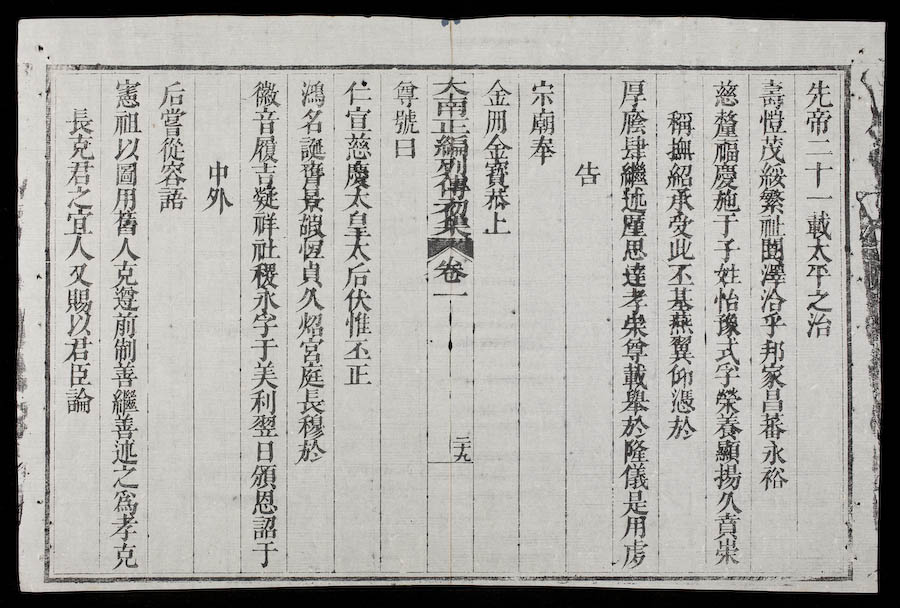 先帝二十一載太平之治
壽愷茂綏繁祉閫澤洽乎邦家昌蕃永裕
慈釐福慶施于子姓怡豫式孚榮養顯揚久賁崇
稱撫紹承受此丕基燕翼仰憑於
厚廕肆繼述廑思達孝崇尊載舉於隆儀是用虔
告
宗廟奉
金冊金寶恭上
大南正編列傳初集 卷一 二十九
尊號曰
仁宣慈慶太皇太后伏惟丕正
鴻名誕膺景嘏恆貞久炤宮庭長穆於
徽音履吉凝祥社稷永孚于美利翌日頒恩詔于
中外
后嘗從容語
憲祖以圖用舊人克遵前制善繼善述之為孝克
長克君之宜人又賜以君臣論